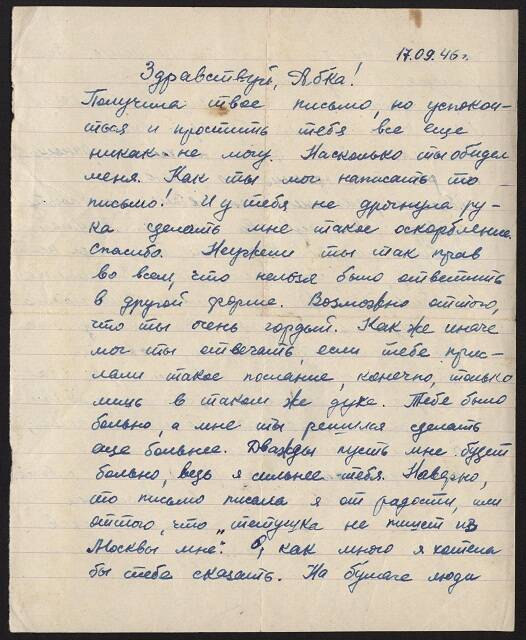 17.09.46г.
Здравствуй, Абка!
Получила твое письмо, но успокои-
ться и простить тебя все еще
никак не могу. Насколько ты обидел
меня. Как ты мог написать то
письмо! И у тебя не дрогнула ру-
ка сделать мне такое оскорбление.
Спасибо. Неужели ты так прав
во всем, что нельзя было ответить
в другой форме. Возможно оттого,
что ты очень гордый. Как же иначе
мог ты отвечать, если тебе прис-
лали такое послание, конечно, только
лишь в таком же духе. Тебе было
больно, а мне ты решился сделать
еще больнее. Дважды пусть мне будет
больно, ведь я сильнее тебя. Наверно,
то письмо писала я от радости, или
оттого, что „тетушка не пишет из
Москвы мне". О, как много я хотела
бы тебе сказать. На бумаге люди